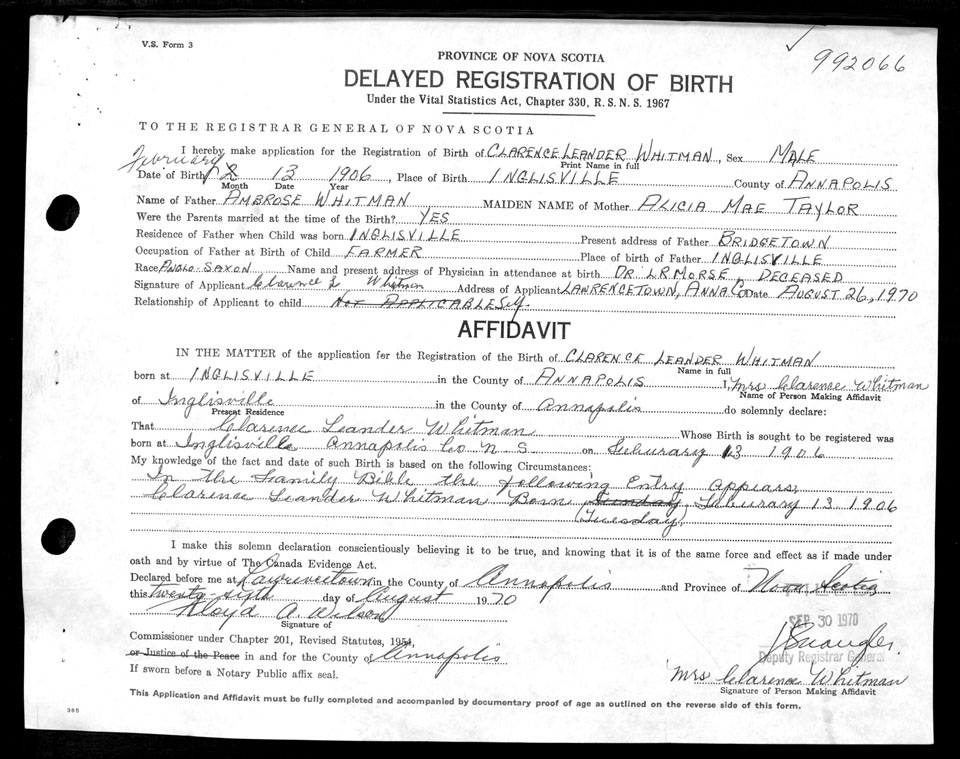 V.S. Form 3
992066
PROVINCE OF NOVA SCOTIA
DELAYED REGISTRATION OF BIRTH
Under the Vital Statistics Act, Chapter 330, R. S. N. S. 1967
TO THE REGISTRAR GENERAL OF NOVA SCOTIA
I hereby make application for the Registration of Birth of CLARENCE LEANDER WHITMAN, Sex MALE
Print Name in full
February
Date of Birth 2 13 1906, Place of Birth INGLISVILLE County of ANNAPOLIS
Month Date Year
Name of Father AMBROSE WHITMAN MAIDEN NAME of Mother ALICIA MAE TAYLOR
Were the Parents married at the time of the Birth? YES
Residence of Father when Child was born INGLISVILLE Present address of Father BRIDGETOWN
Occupation of Father at Birth of Child FARMER Place of birth of Father INGLISVILLE
Race ANGLO-SAXON Name and present address of Physician in attendance at birth DR. L R MORSE, DECEASED
Signature of Applicant Clarence L Whitman Address of Applicant LAWRENCETOWN, ANNA Co Date AUGUST 26, 1970
Relationship of Applicant to child NOT APPLICABLE Self.
AFFIDAVIT
IN THE MATTER of the application for the Registration of the Birth of CLARENCE LEANDER WHITMAN
Name in full
born at INGLISVILLE in the County of ANNAPOLIS I, Mrs Clarence Whitman
Name of Person Making Affidavit
of Inglisville in the County of Annapolis do solemnly declare:
Present Residence
That Clarence Leander Whitman Whose Birth is sought to be registered was
born at Inglisville Annapolis Co N. S. on Feburary 13 1906
My knowledge of the fact and date of such Birth is based on the following Circumstances:
In the Family Bible the following Entry appears,
Clarence Leander Whitman Born Sunday Feburary 13 1906
(Tuesday)
I make this solemn declaration conscientiously believing it to be true, and knowing that it is of the same force and effect as if made under
oath and by virtue of The Canada Evidence Act.
Declared before me at Lawrencetown in the County of Annapolis and Province of Nova Scotia
this Twenty sixth day of August 1970
Lloyd A. Wilson
Signature of
SEP 30 1970
Commissioner under Chapter 201, Revised Statutes, 1954,
or Justice of the Peace in and for the County of Annapolis
Deputy Registrar General
If sworn before a Notary Public affix seal.
Mrs Clarence Whitman
Signature of Person Making Affidavit
This Application and Affidavit must be fully completed and accompanied by documentary proof of age as outlined on the reverse side of this form.
385